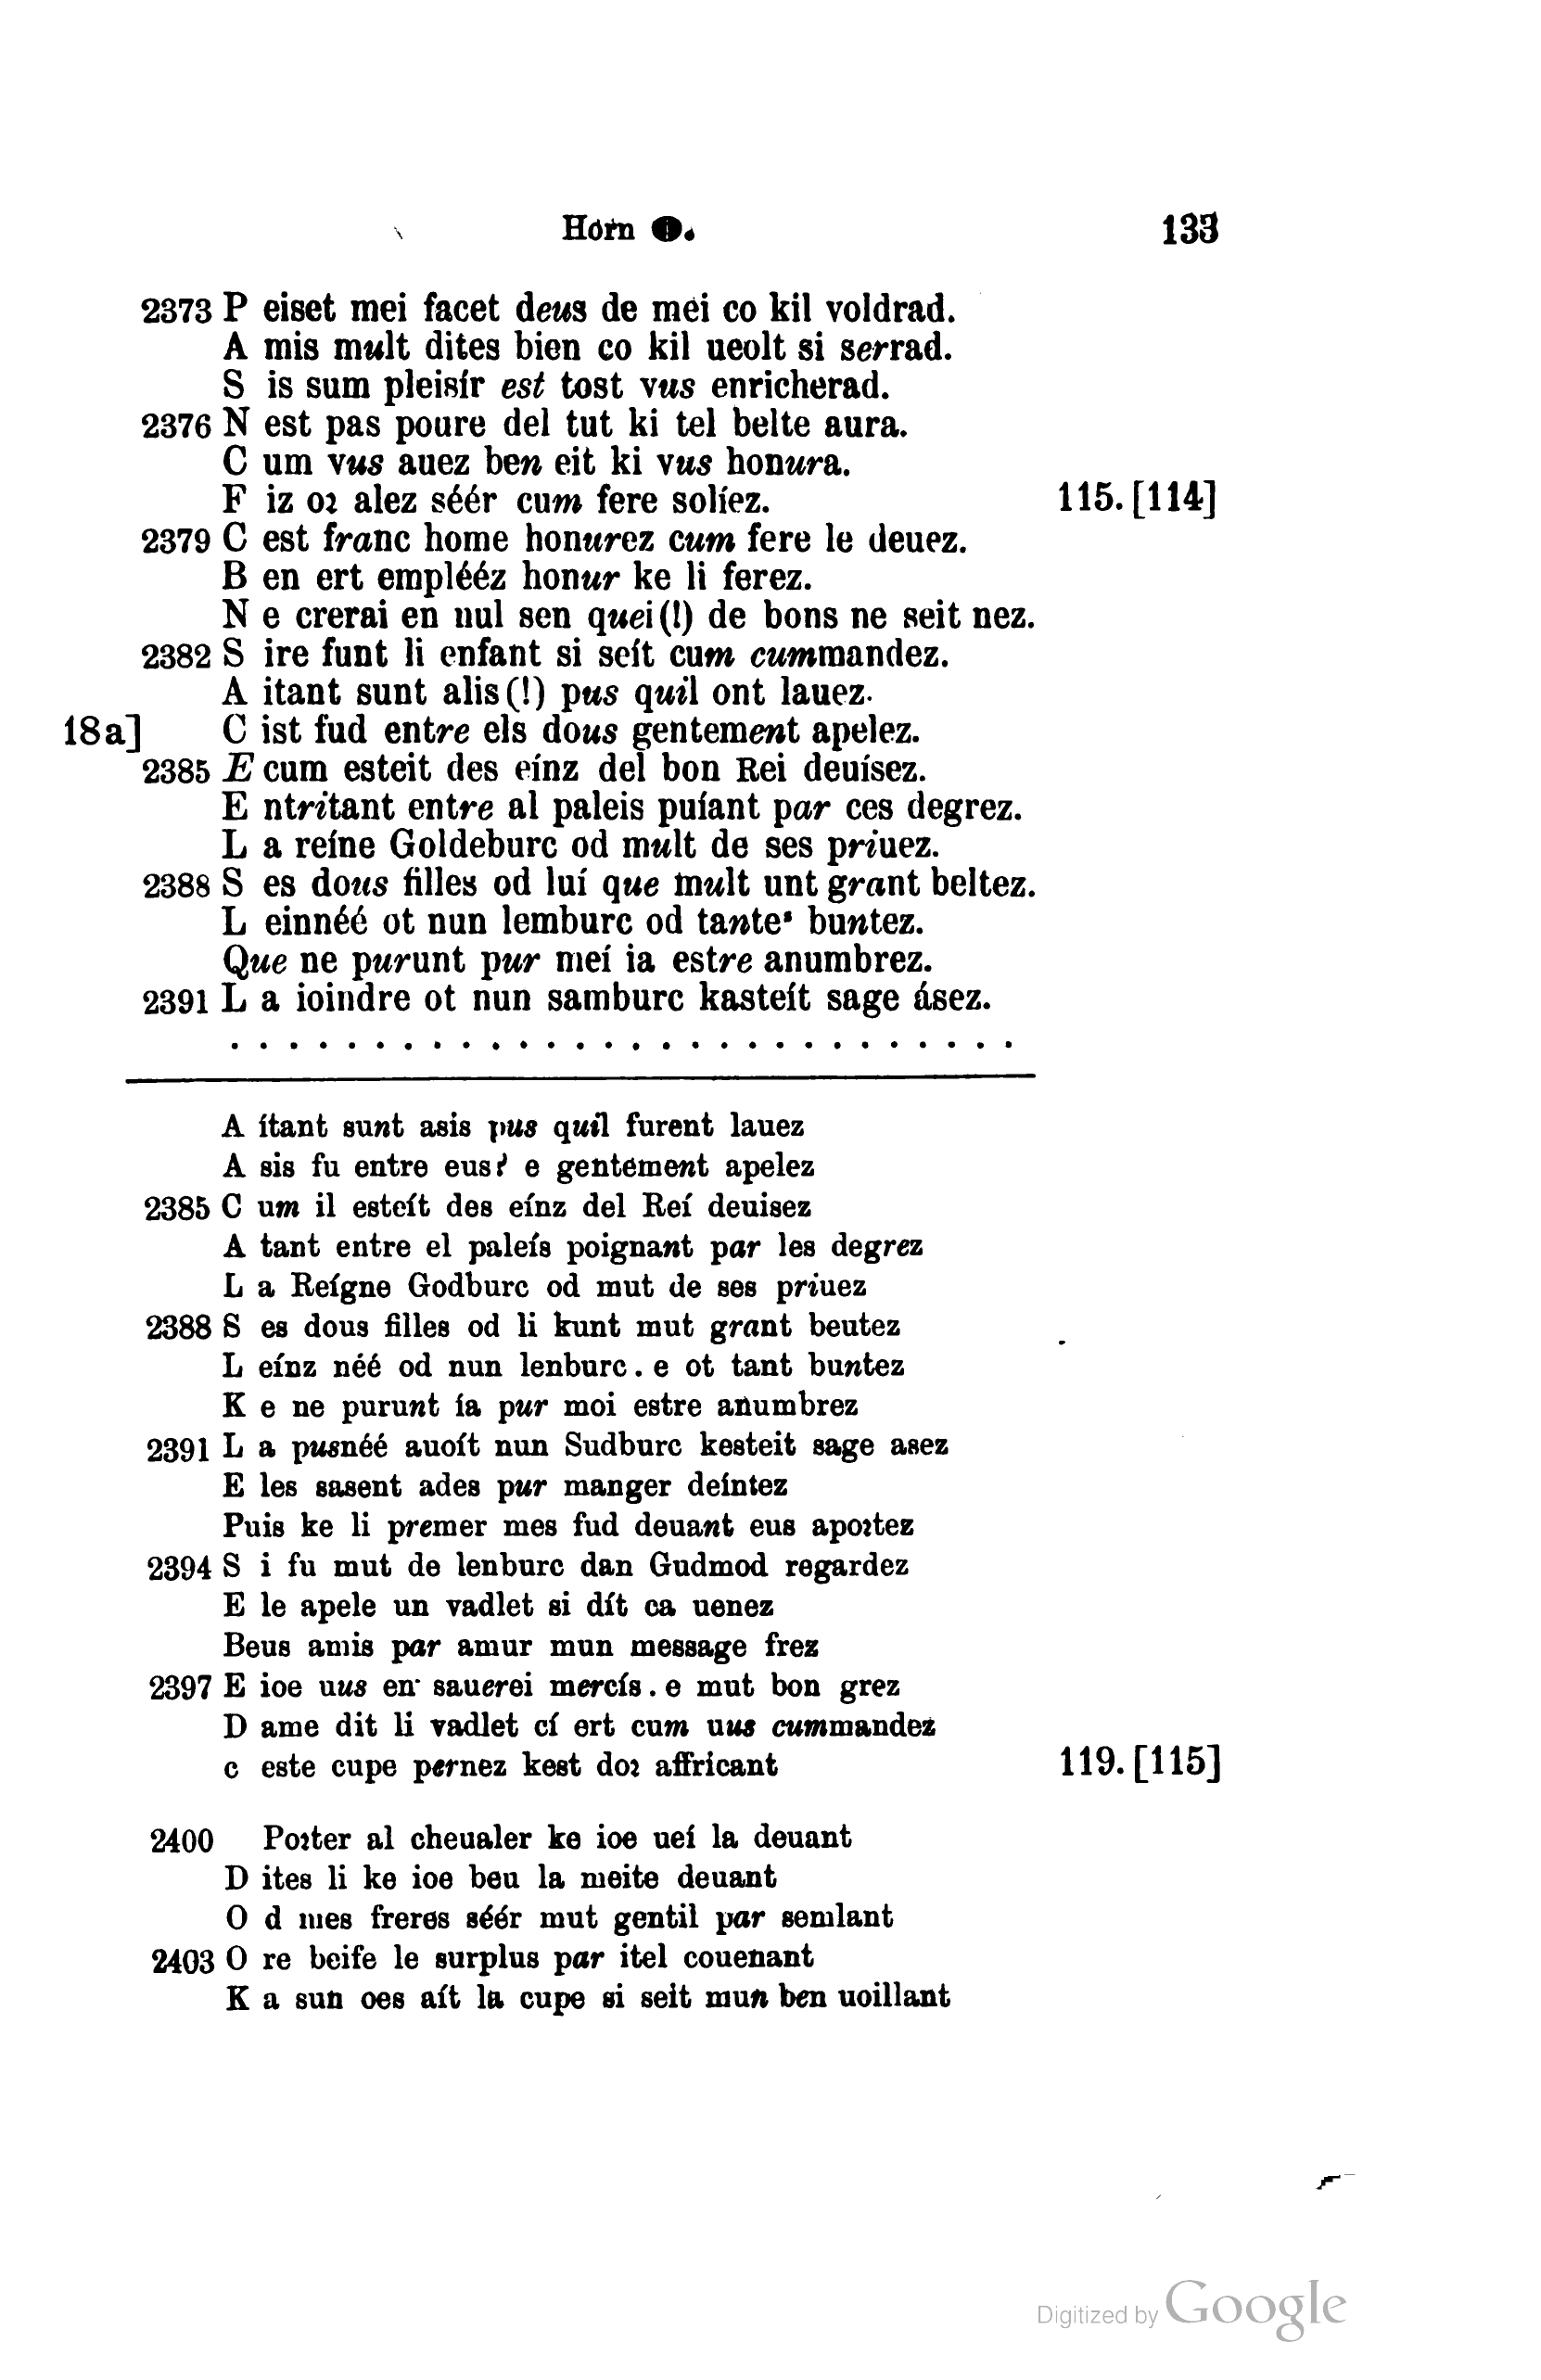 Horn O. 133
2373 P eiset mei facet deus de mei co kil voldrad.
A mis mult dites bien co kil ueolt si serrad.
S is sum pleisír est tost vus enricherad.
2376 N est pas poure del tut ki tel belte aura.
C um vus auez ben eit ki vus honura.
F iz oꝛ alez séér cum fere solíez. 115. [114]
2379 C est franc home honurez cum fere le deuez.
B en ert emplééz honur ke li ferez.
N e crerai en nul sen quei (!) de bons ne seit nez.
2382 S ire funt li enfant si seít cum cummandez.
A itant sunt alis (!) pus quil ont lauez.
18a] C ist fud entre els dous gentement apelez.
2385 E cum esteit des eínz del bon Rei deuísez.
E ntritant entre al paleis puíant par ces degrez.
L a reíne Goldeburc od mult de ses priuez.
2388 S es dous filles od luí que mult unt grant beltez.
L einnéé ot nun lemburc od tante' buntez.
Que ne purunt pur meí ia estre anumbrez.
2391 L a ioindre ot nun samburc kasteít sage ásez.
. . . . . . . . . . . . . . . . . . . . . . . . . . . .
A ítant sunt asis pus quil furent lauez
A sis fu entre eus? e gentement apelez
2385 C um il esteít des eínz del Reí deuisez
A tant entre el paleís poignant par les degrez
L a Reígne Godburc od mut de ses priuez
2388 S es dous filles od li kunt mut grant beutez
L eínz néé od nun lenburc . e ot tant buntez
K e ne purunt ía pur moi estre anumbrez
2391 L a pusnéé auoít nun Sudburc kesteit sage asez
E les sasent ades pur manger deíntez
Puis ke li premer mes fud deuant eus apoꝛtez
2394 S i fu mut de lenburc dan Gudmod regardez
E le apele un vadlet si dít ca uenez
Beus amis par amur mun message frez
2397 E ioe uus en sauerei mercís . e mut bon grez
D ame dit li vadlet cí ert cum uus cummandez
c este cupe pernez kest doꝛ affricant 119. [115]
2400 Poꝛter al cheualer ke ioe ueí la deuant
D ites li ke ioe beu la meite deuant
O d mes freres séér mut gentil par semlant
2403 O re beife le surplus par itel couenant
K a sun oes aít la cupe si seit mun ben uoillant
Digitized by Google